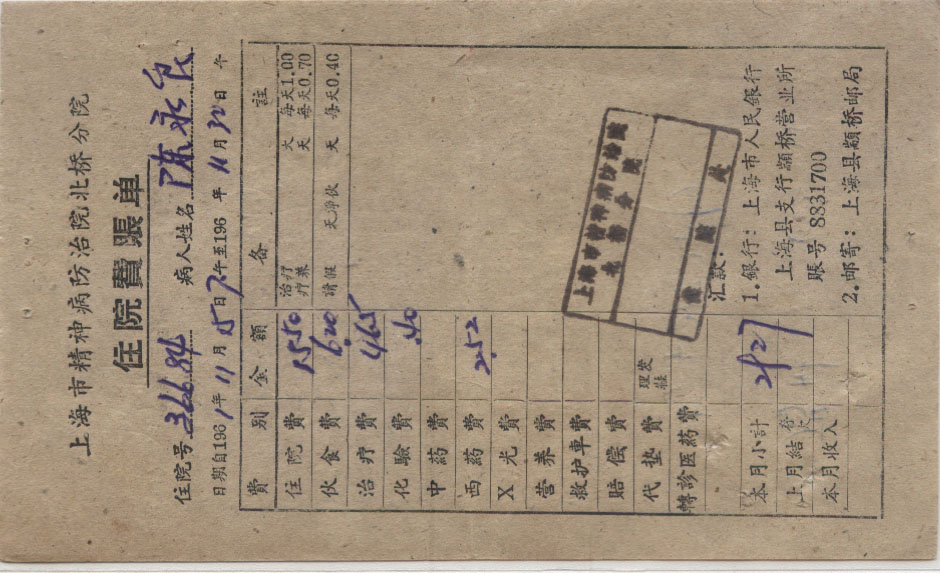 上海市精神病防治院北桥分院
住院費賬单
住院号 36684 病人姓名 陈永良
日期自1961年11月15日下午至196 年11月30日 午
費别 金額 备註
住院費 15.50 治疗 天 每天1.00
疗养 天 每天0.70
伙食費 6.20 請假 天净伙 天 每天0.40
治疗費 4.65
化驗費 .40
中药費
西药費 2.52
X光費
营养費
救护車費
賠偿費
代垫費 理发
轉診医药費
本月小計 29.27
上月結欠
本月收入
汇款:
1.銀行:上海市人民銀行
上海县支行顓桥营业所
賬号 8831700
2.邮寄:上海县顓桥邮局
上海市精神病防治院
北桥分院